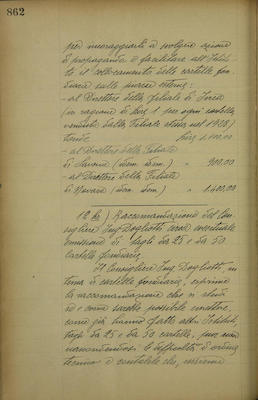 862
per incoraggiarli a svolgere azione
di propaganda e facilitare all'Istitu-
to il collocamento delle cartelle fon-
diarie sulle piazze estere:
- al Direttore della Filiale di
(in ragione di Lire 1 per ogni cartella
venduta dalla Filiale stessa nel 1928)
Lire 1.100.00
- al Direttore della Filiale
di Savona (idem idem) " 900.00
- al Direttore della Filiale
di Novara (idem idem) " 1.400.00
12 b) Raccomandazione del Con-
sigliere Ing. Dogliotti circa eventuale
emissione di fogli da 25 e da 50
cartelle fondiarie.
Il Consigliere Ing. Dogliotti, in
tema di cartelle fondiarie, esprime
la raccomandazione che si
come sarebbe possibile emettere,
come già hanno fatto altri Istituti,
fogli da 25 e da 50 cartelle, pur non
nascondendosi le difficoltà d'ordine
tecnico e contabile che,